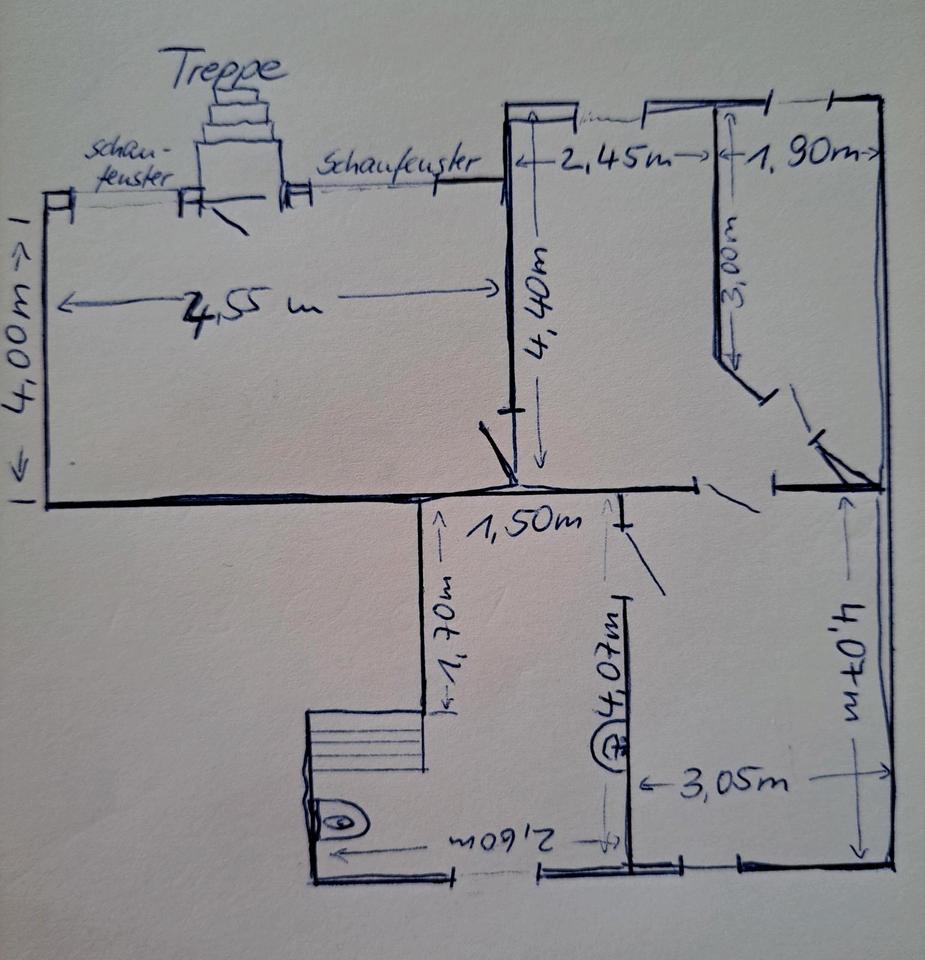 Treppe
schau-
fenster
Schaufenster
2,45m
1,90m
4,00m
4,55 m
4,40m
3,00m
1,50m
1,70m
4,07m
4,07m
3,05m
2,60m